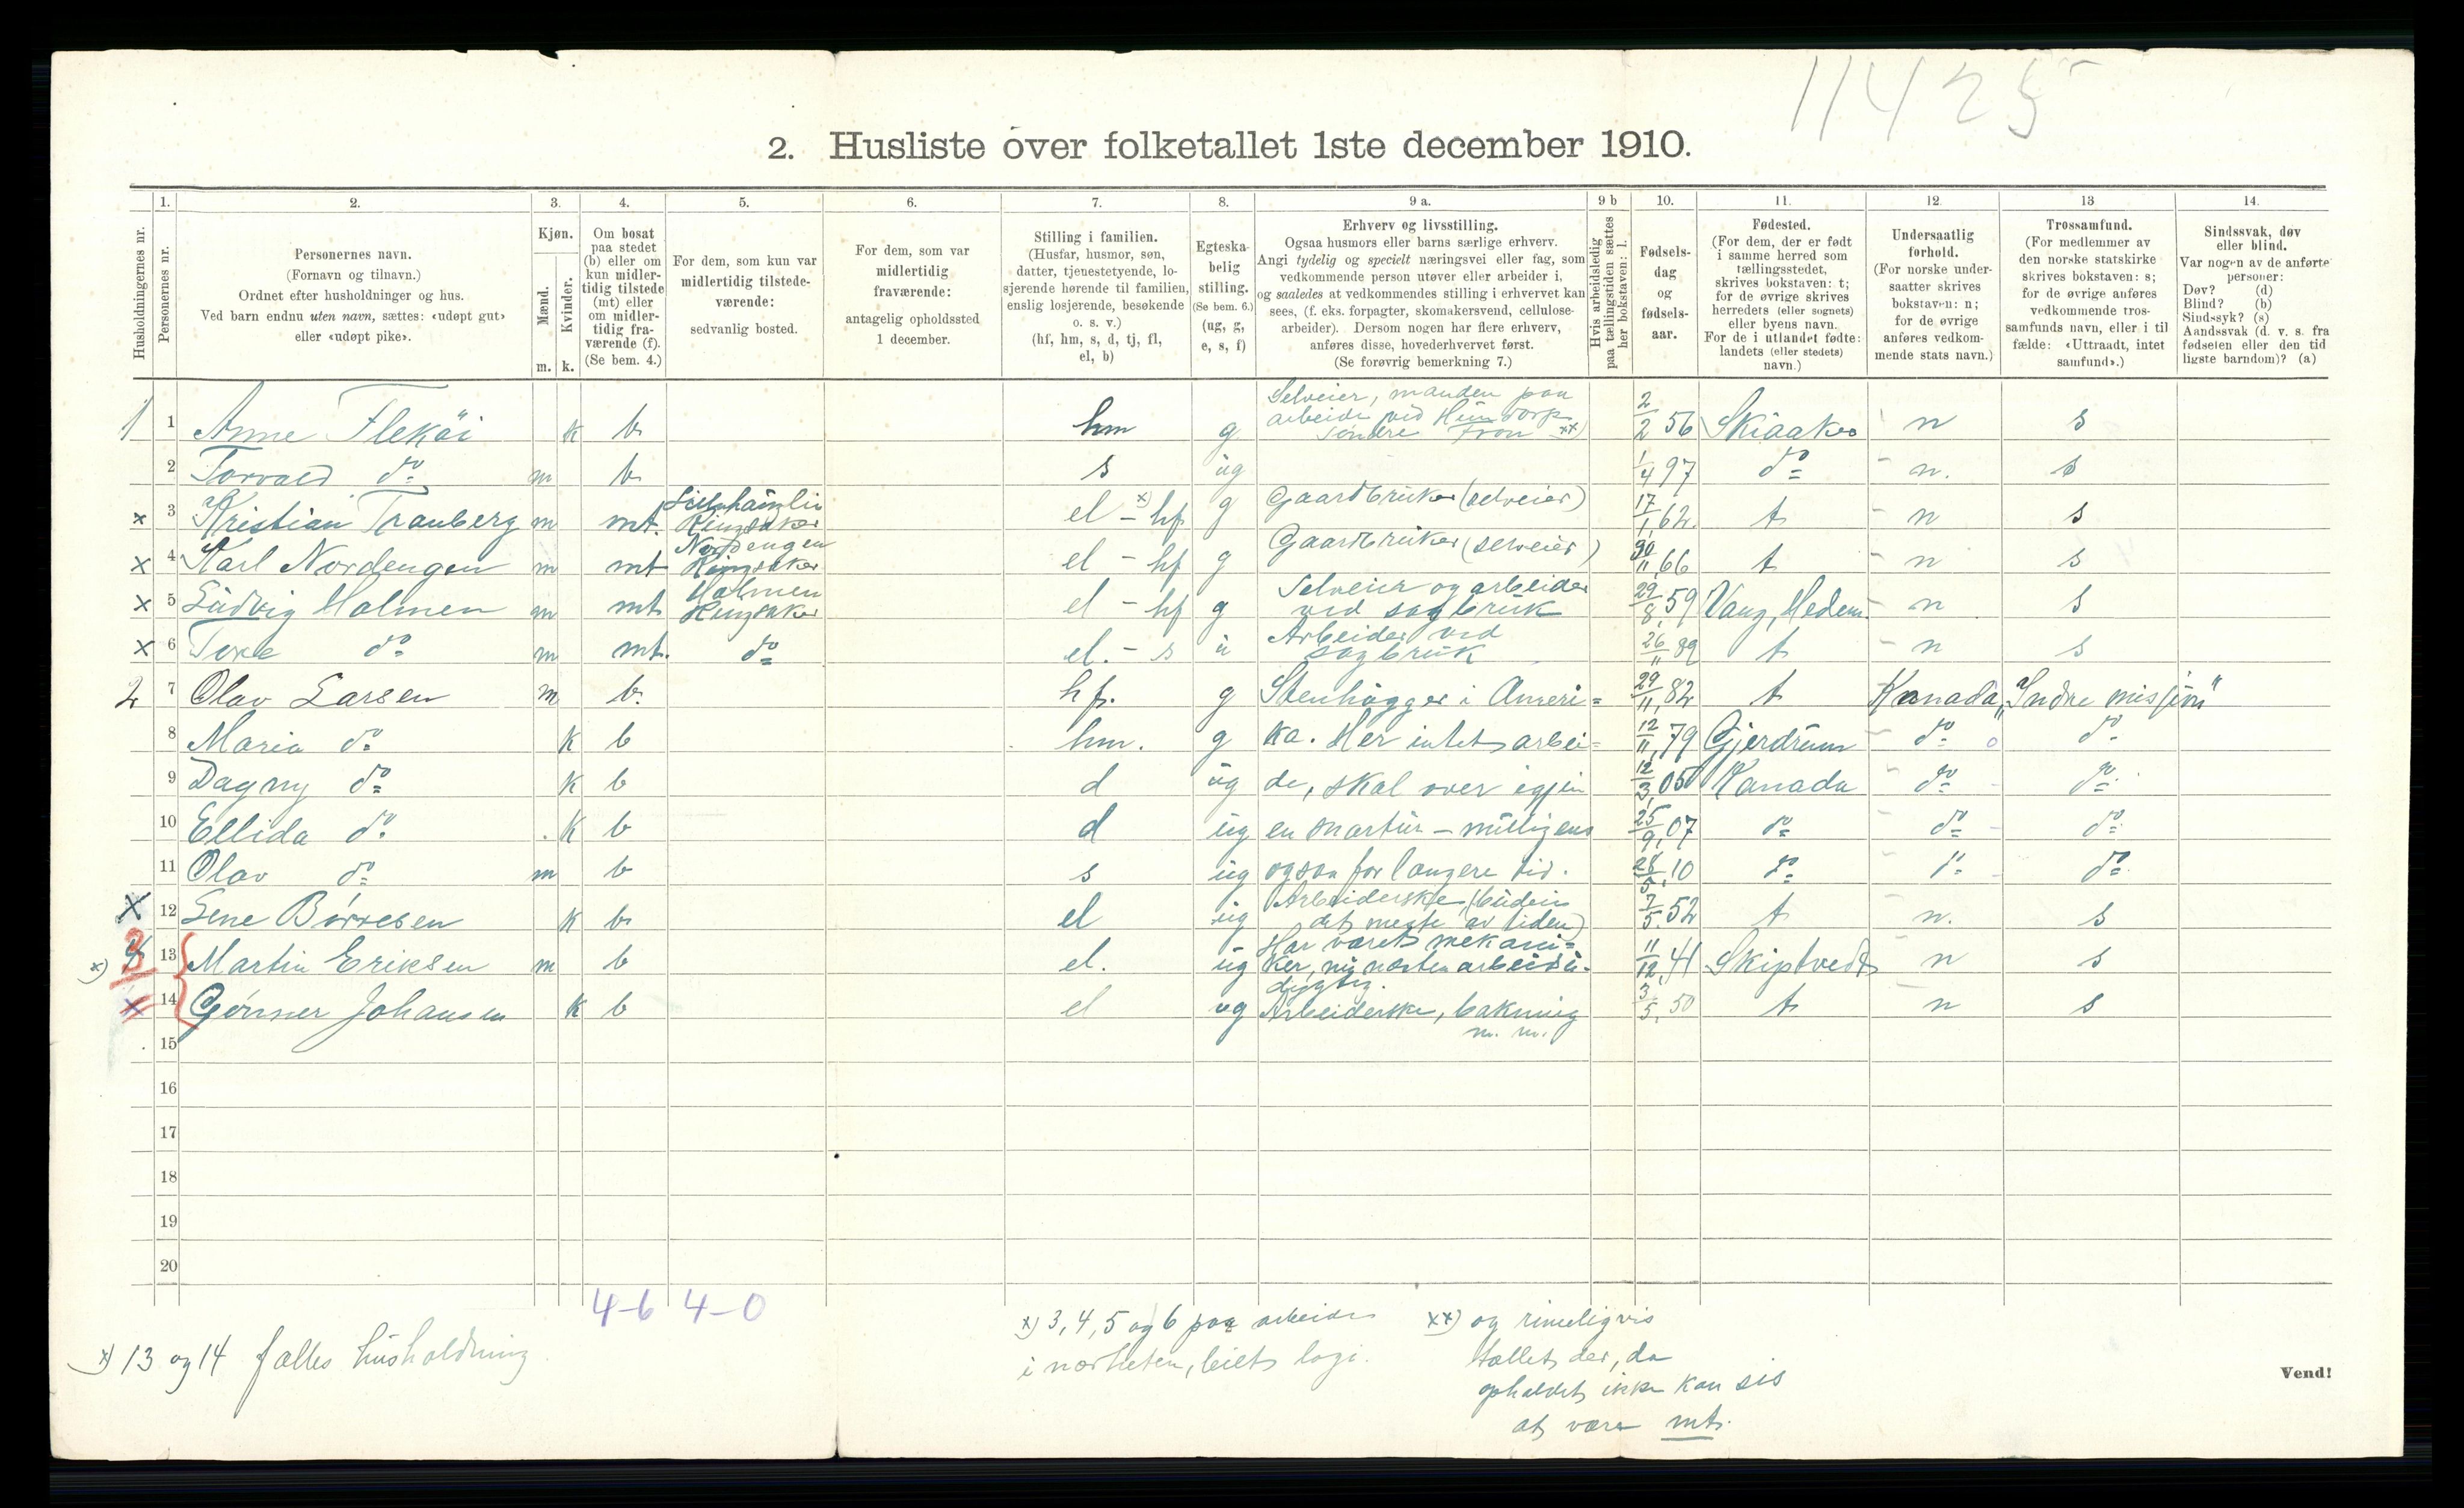 11425
2. Husliste over folketallet 1ste december 1910.
Husholdningernes nr.
1. Personernes nr.
2. Personernes navn.
(Fornavn og tilnavn.)
Ordnet efter husholdninger og hus.
Ved barn endnu uten navn, sættes: «udøpt gut»
eller «udøpt pike».
3. Kjøn.
Mænd. Kvinder.
m. k.
4. Om bosat
paa stedet
(b) eller om
kun midler-
tidig tilstede
(mt) eller
om midler-
tidig fra-
værende (f).
(Se bem. 4.)
5. For dem, som kun var
midlertidig tilstede-
værende:
sedvanlig bosted.
6. For dem, som var
midlertidig
fraværende:
antagelig opholdssted
1 december.
7. Stilling i familien.
(Husfar, husmor, søn,
datter, tjenestetyende, lo-
sjerende hørende til familien,
enslig losjerende, besøkende
o. s. v.)
(hf, hm, s, d, tj, fl,
el, b)
8. Egteska-
belig
stilling.
(Se bem. 6.)
(ug, g,
e, s, f)
9 a. Erhverv og livsstilling.
Ogsaa husmors eller barns særlige erhverv.
Angi tydelig og specielt næringsvei eller fag, som
vedkommende person utøver eller arbeider i,
og saaledes at vedkommendes stilling i erhvervet kan
sees, (f. eks. forpagter, skomakersvend, cellulose-
arbeider). Dersom nogen har flere erhverv,
anføres disse, hovederhvervet først.
(Se forøvrig bemerkning 7.)
9 b Hvis arbeidsledig
paa tællingstiden sættes
her bokstaven: l.
10. Fødsels-
dag
og
fødsels-
aar.
11. Fødested.
(For dem, der er født
i samme herred som
tællingsstedet,
skrives bokstaven: t;
for de øvrige skrives
herredets (eller sognets)
eller byens navn.
For de i utlandet fødte:
landets (eller stedets)
navn.)
12. Undersaatlig
forhold.
(For norske under-
saatter skrives
bokstaven: n;
for de øvrige
anføres vedkom-
mende stats navn.)
13 Trossamfund.
(For medlemmer av
den norske statskirke
skrives bokstaven: s;
for de øvrige anføres
vedkommende tros-
samfunds navn, eller i til
fælde: «Uttraadt, intet
samfund».)
14. Sindssvak, døv
eller blind.
Var nogen av de anførte
personer:
Døv? (d)
Blind? (b)
Sindssyk? (s)
Aandssvak (d. v. s. fra
fødselen eller den tid
ligste barndom)? (a)
1 1 Anne Flekøi k b hm g Selveier, manden paa
arbeide ved Hundorp
Søndre Fron xx) 2/2 56 Skiaaker n s
2 Torvald do m b s ug 1/4 97 do n. s
x 3 Kristian Tranberg m mt. Ringsaker el x) - hf g Gaardbruker (selveier) 17/1 62. t n s
x 4 Karl Nordengen m mt Nordengen
Ringsaker el - hf g Gaardbruker (selveier) 30/11 66 t n s
x 5 Ludvig Holmen m mt Holmen
Ringsaker el - hf g Selveier og arbeider
ved sagbruk 29/8 59 Vang, Hedem. n s
x 6 do m mt. do el. - s u Arbeider ved
sagbruk 26/11 89 t n s
2 7 Olav Larsen m b. hf. g Stenhugger i Ameri= 29/11 82 t Kanada „Indre misjon"
8 Maria do k b hm. g ka. Her intet arbei= 12/11 79 Gjerdrum do do
9 Dagny do k b d ug de, skal over igjen 12/3 05 Kanada do do
10 Ellida do k b d ug en snartur - muligens 25/9 07 do do do
11 Olav do m b s ug ogsaa for længere tid. 28/5 10 do do do
x 12 Lene Børresen k b el ug Arbeiderske, (budeie
det meste av tiden) 7/5 52 t n. s
x) 3 13 Martin Eriksen m b el. ug Har været mekani=
ker, nu næsten arbeidsu-
dygtig. 11/12 41 Skiptvedt n s
x 14 Gunner Johansen k b el ug Arbeiderske, bakning
m. m. 3/5 50 t n s
15
16
17
18
19
20
4-6 4-0
x) 13 og 14 fælles husholdning.
x) 3, 4, 5 og 6 paa arbeide
i nærheten, leiet logi.
xx) og rimeligvis
tællet der, da
opholdet ikke kan sies
at være mt.
Vend!